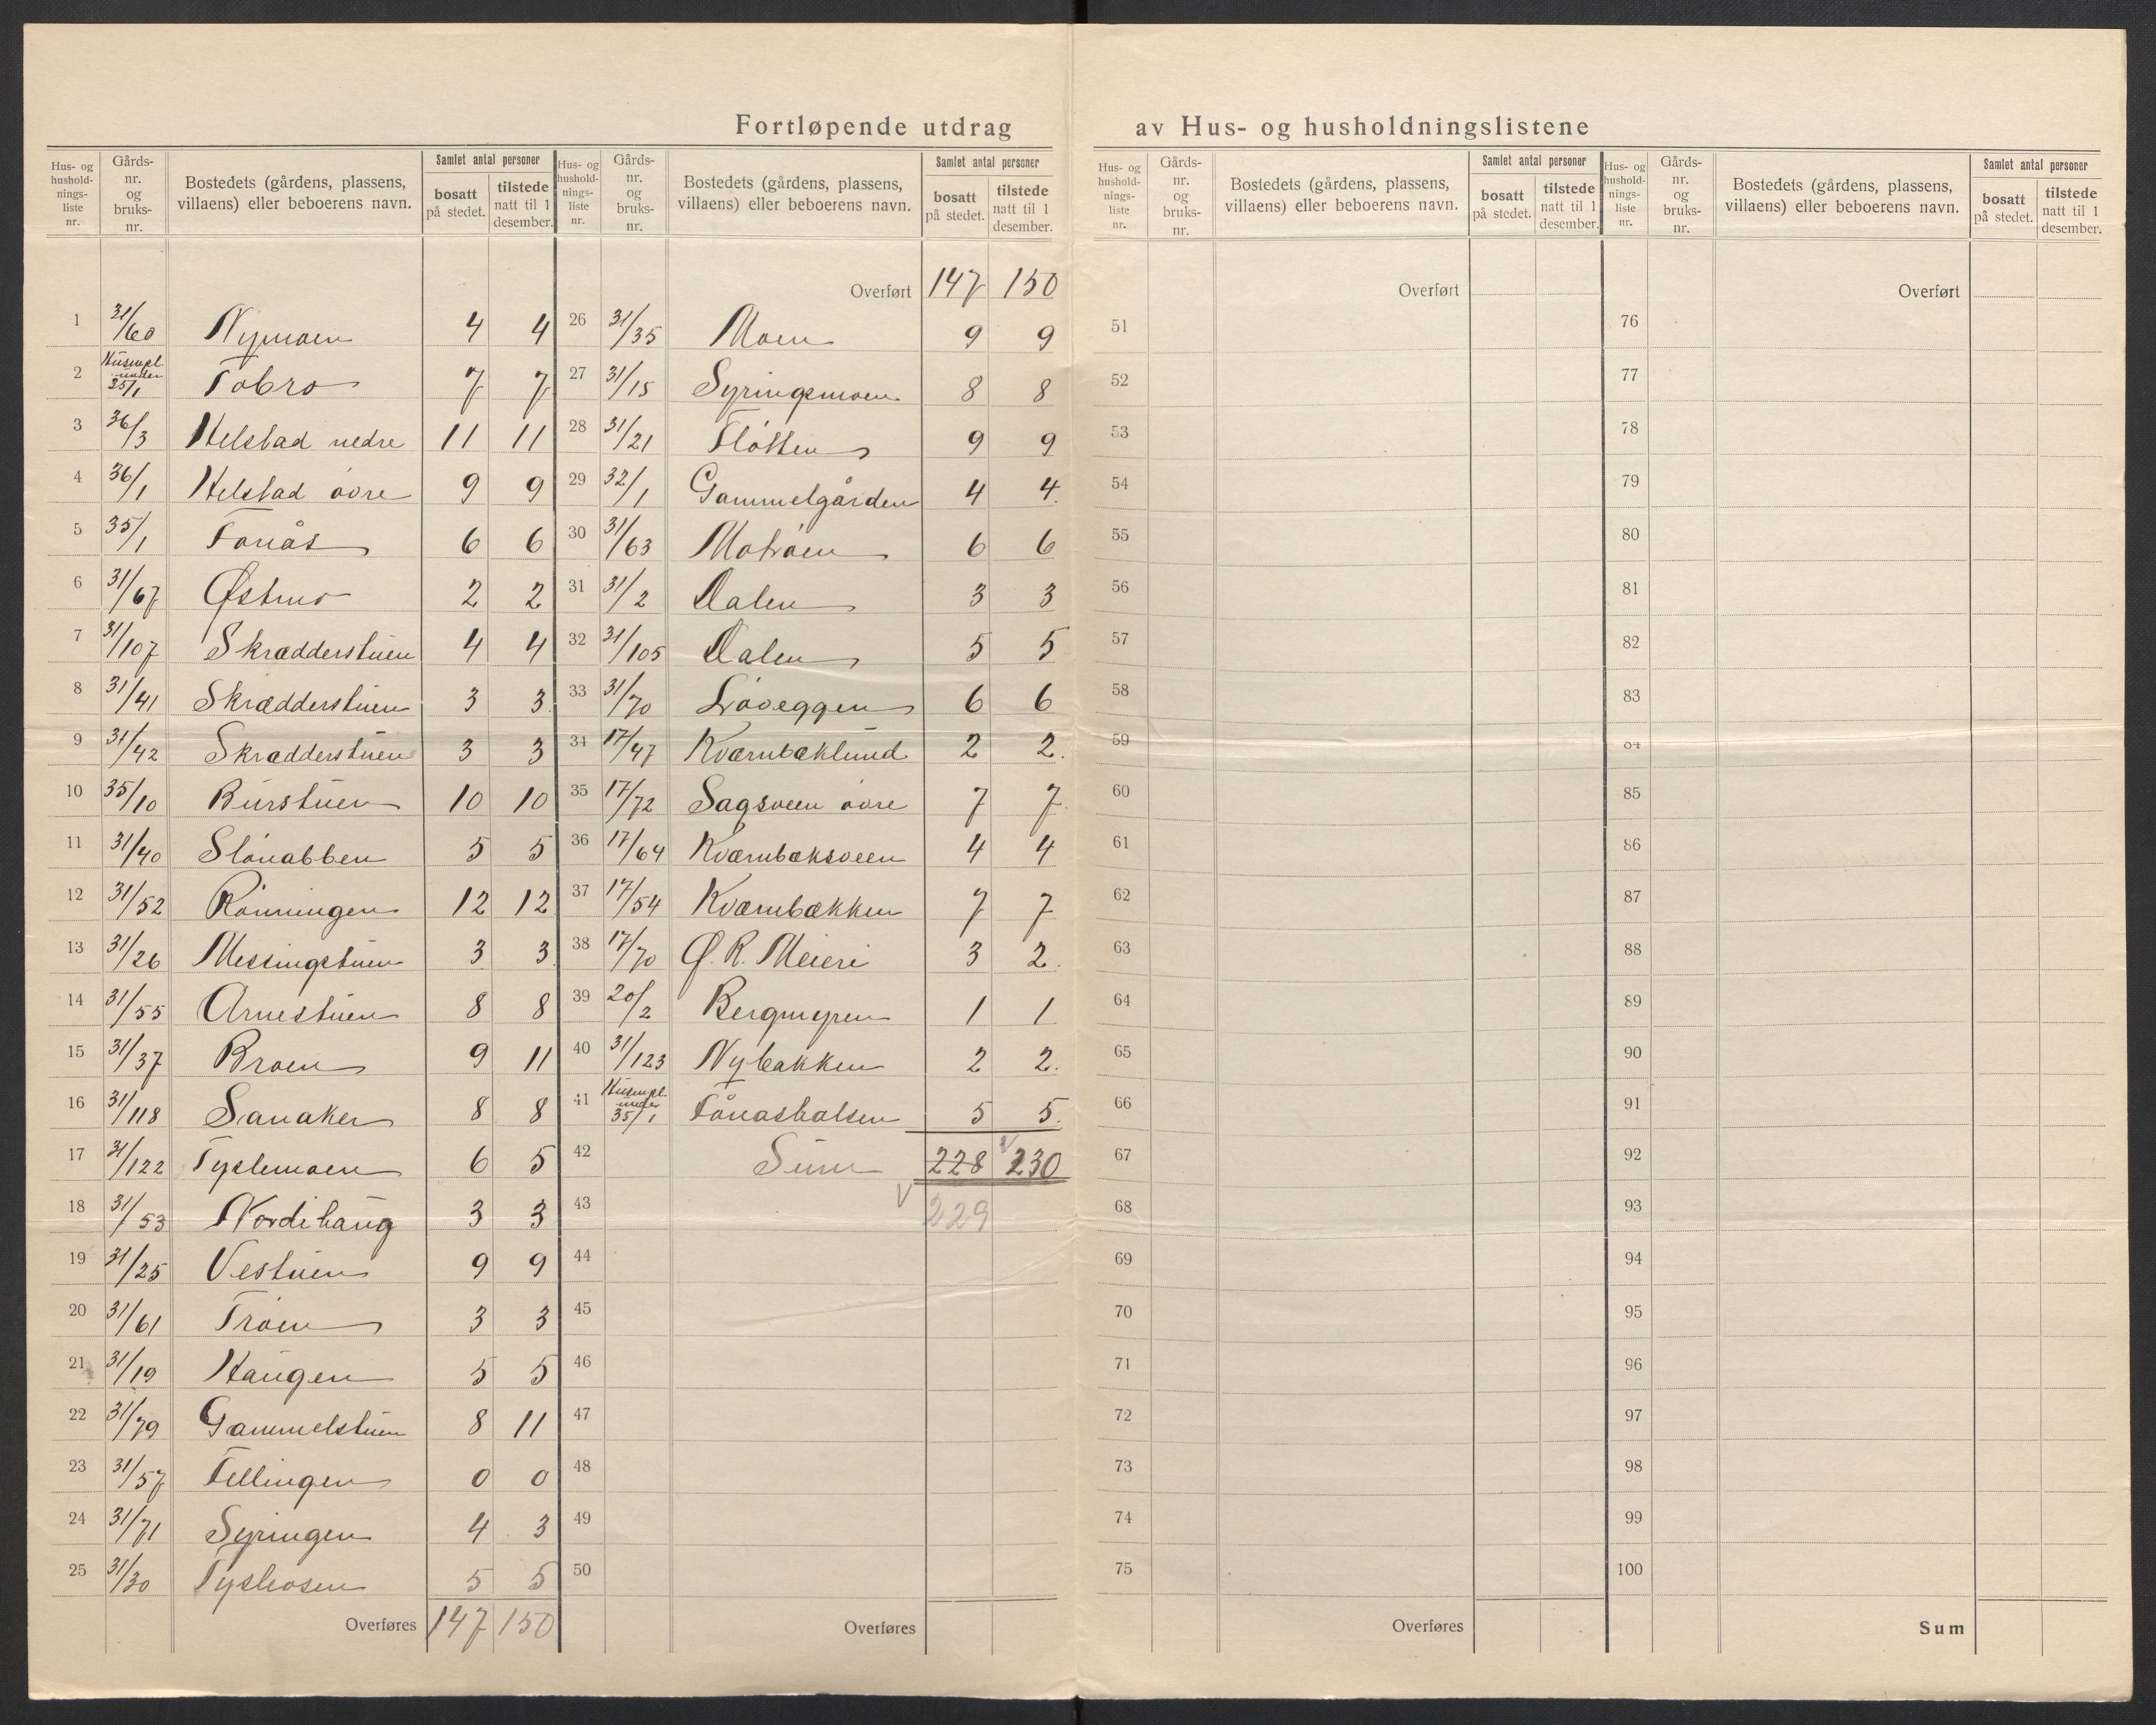 Fortløpende utdrag av Hus- og husholdningslistene
Hus- og husholdnings- liste nr. | Gårds- nr. og bruks- nr. | Bostedets (gårdens, plassens, villaens) eller beboerens navn. | Samlet antal personer | bosatt på stedet. | tilstede natt til 1 desember.
1 31/60 Nymoen 4 4
2 Husmpl. under 25/1 Tobro 7 7
3 36/3 Helstad nedre 11 11
4 36/1 Helstad övre 9 9
5 35/1 Tonås 6 6
6 31/67 Østmo 2 2
7 31/107 Skrædderstuen 4 4
8 31/41 Skrædderstuen 3 3
9 31/42 Skrædderstuen 3 3
10 35/10 Burstuen 10 10
11 31/40 Slönabben 5 5
12 31/52 Rönningen 12 12
13 31/26 Messingstuen 3 3
14 31/55 Arnestuen 8 8
15 31/37 Broen 9 11
16 31/118 Sanaker 8 8
17 31/122 Tyslemoen 6 5
18 31/53 Nordihaug 3 3
19 31/25 Vestuen 9 9
20 31/61 Tröen 3 3
21 31/19 Haugen 5 5
22 31/79 Gammelstuen 8 11
23 31/57 Fellingen 0 0
24 31/71 Syringen 4 3
25 31/30 5 5
Overføres 147 150
Hus- og hushold- nings- liste nr. | Gårds- nr. og bruks- nr. | Bostedets (gårdens, plassens, villaens) eller beboerens navn. | Samlet antal personer | bosatt på stedet. | tilstede natt til 1 desember.
Overført 147 150
26 31/35 Moen 9 9
27 31/15 Syringsmoen 8 8
28 31/21 Flötten 9 9
29 32/1 Gammelgården 4 4.
30 31/63 Motröen 6 6
31 31/2 Dalen 3 3
32 31/105 Dalen 5 5
33 31/70 Löveggen 6 6
34 17/47 Kværnbæklund 2 2.
35 17/72 Sagsveen övre 7 7.
36 17/64 Kværnbæksveen 4 4
37 17/54 Kværnbækken 7 7
38 17/70 Ø. R. Meieri 3 2.
39 20/2 Bergmyren 1 1
40 31/123 Nybakken 2 2.
41 Husmpl. under 35/1 Tönashalsen 5 5.
42 Sum 228 230
43 229
44
45
46
47
48
49
50
Overføres
Hus- og hushold- nings- liste nr. | Gårds- nr. og bruks- nr. | Bostedets (gårdens, plassens, villaens) eller beboerens navn. | Samlet antal personer | bosatt på stedet. | tilstede natt til 1 desember.
Overført
51
52
53
54
55
56
57
58
59
60
61
62
63
64
65
66
67
68
69
70
71
72
73
74
75
Overføres
Hus- og hushold- nings- liste nr. | Gårds- nr. og bruks- nr. | Bostedets (gårdens, plassens, villaens) eller beboerens navn. | Samlet antal personer | bosatt på stedet. | tilstede natt til 1 desember.
Overført
76
77
78
79
80
81
82
83
84
85
86
87
88
89
90
91
92
93
94
95
96
97
98
99
100
Sum